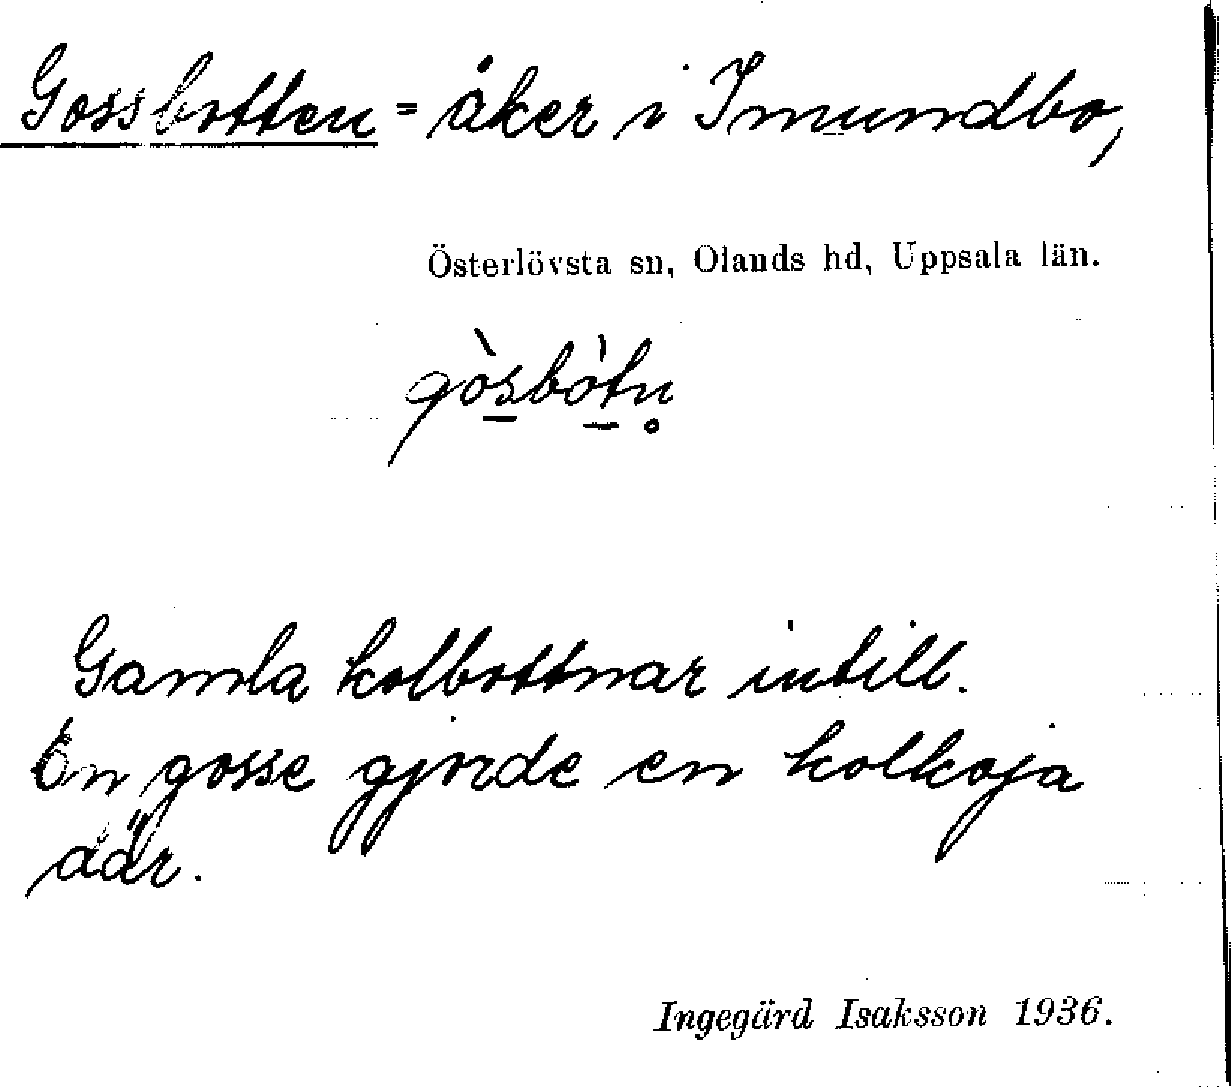 Gossbotten = åker i Imundbo,
Österlövsta sn, Olands hd, Uppsala län.
gòs̱bòt̠n̥
Gamla kolbottnar intill.
En gosse gjorde en kolkoja
där.
Ingegärd Isaksson 1936.